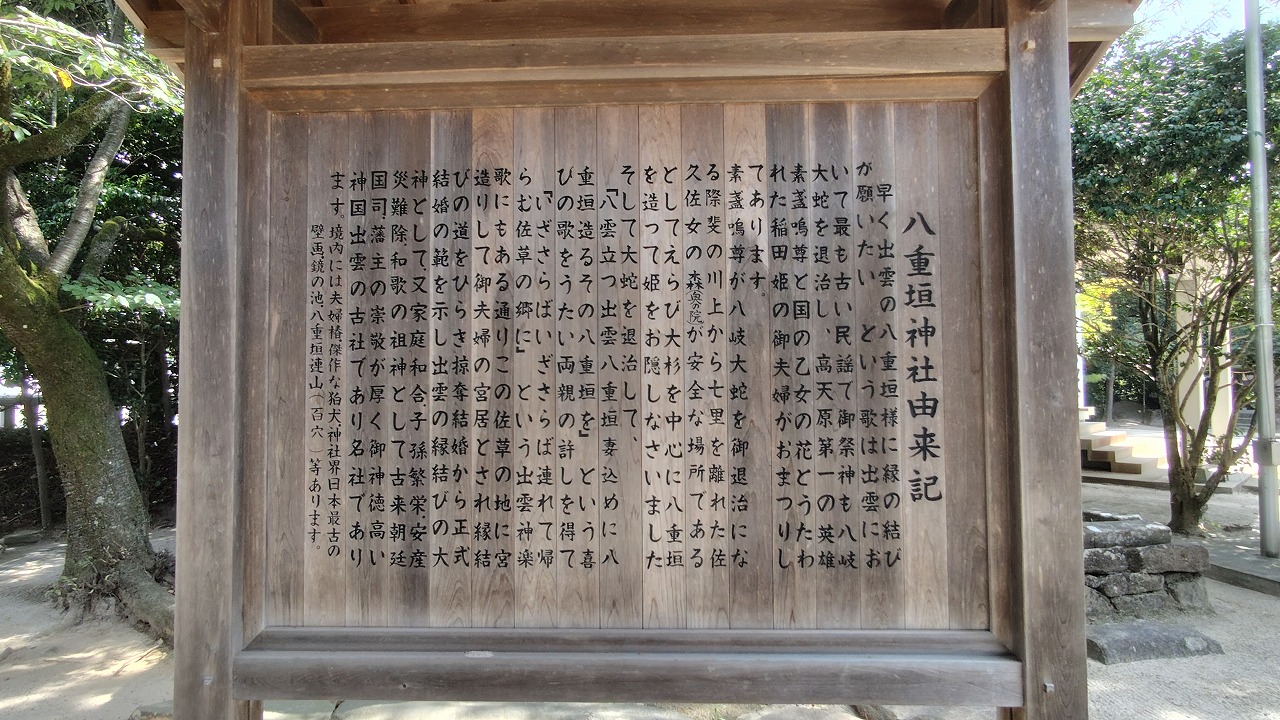 八重垣神社由来記
早く出雲の八重垣様に縁の結び
が願いたい　という歌は出雲にお
いて最も古い民謡て御祭神も八岐
大蛇を退治し、高天原第一の英雄
素盞嗚尊と国の乙女の花とうたわ
れた稲田姫の御夫婦がおまつりし
てあります。
素盞嗚尊が八岐大蛇を御退治にな
る際斐の川上から七里を離れた佐
久佐女の森（奥の院）が安全な場所である
としてえらび大杉を中心に八重垣
を造って姫をお隠しなさいました
そして大蛇を退治して、
「八雲立つ出雲八重垣妻込めに八
重垣造るその八重垣を』という喜
びの歌をうたい両親の許しを得て
「いざさらばいざさらば連れて帰
らむ佐草の郷に』という出雲神楽
歌にもある通りこの佐草の地に宮
造りして御夫婦の宮居とされ縁結
びの道をひらき掠奪結婚から正式
結婚の範を示し出雲の縁結びの大
神として、又家庭和合子孫繁栄安産
災難除和歌の祖神として古来朝廷
国司藩主の崇敬が厚く御神徳高い
神国出雲の古社であり名社であり
ます。境内には夫婦椿傑作な狛犬神社界日本最古の
壁画鏡の池八重垣連山（百穴）等あります。